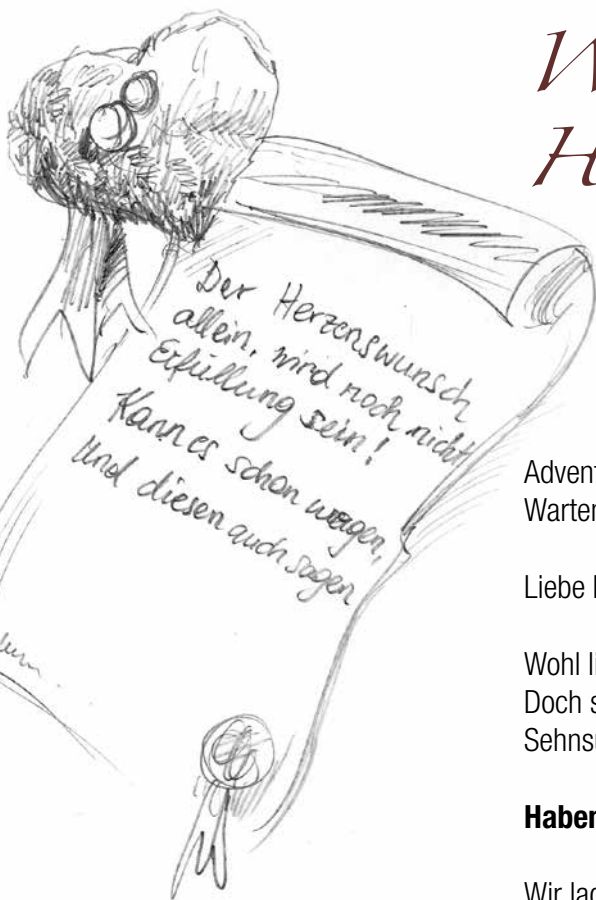 W
H
Der Herzenswunsch
allein, wird noch nicht
Erfüllung sein!
Kann es schon wagen,
Und diesen auch sagen
Advent
Warten
Liebe
Wohl
Doch
Haben
Wir